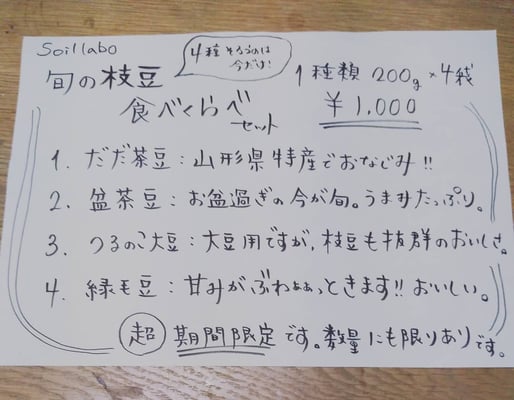 Soillabo
4種そろうのは
今だけ!
旬の枝豆
食べくらべ
セット
1種類 200g×4袋
¥1,000
1. だだ茶豆:山形県特産でおなじみ!!
2. 盆茶豆:お盆過ぎの今が旬。うまみたっぷり。
3. つるのこ大豆:大豆用ですが、枝豆も抜群のおいしさ。
4. 緑毛豆:甘みがぶわぁぁっときます!!おいしい。
超 期間限定です。数量にも限りありです。